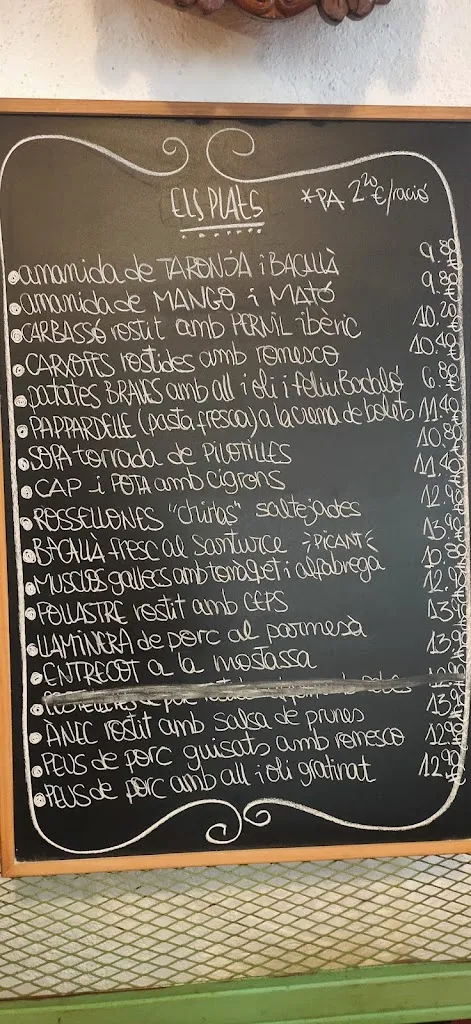 ELS PLATS
*PA 2,20 €/ració
amanida de TARONJA i BACALLÀ 9.80
amanida de MANGO i MATÓ 9.80
CARBASSÓ rostit amb PERNIL ibèric 10.20
CARXOFES rostides amb romesco 10.40
patates BRAVES amb all i oli i feliu Badaló 6.80
PAPPARDELLE (pasta fresca) a la crema de bolets 11.40
SOPA torrada de PILOTILLES 10.80
CAP i POTA amb cigrons 11.40
ROSSELLONES "chirlas" saltejades 12.90
BACALLÀ fresc al santurce PICANT
MUSCLOS gallecs amb tomàquet i alfàbrega
POLLASTRE rostit amb CEPS
LLAMINERA de porc al parmesà
ENTRECOT a la mostassa
ÀNEC rostit amb salsa de prunes
PEUS de porc guisats amb romesco 12.90
PEUS de porc amb all i oli gratinat 12.90